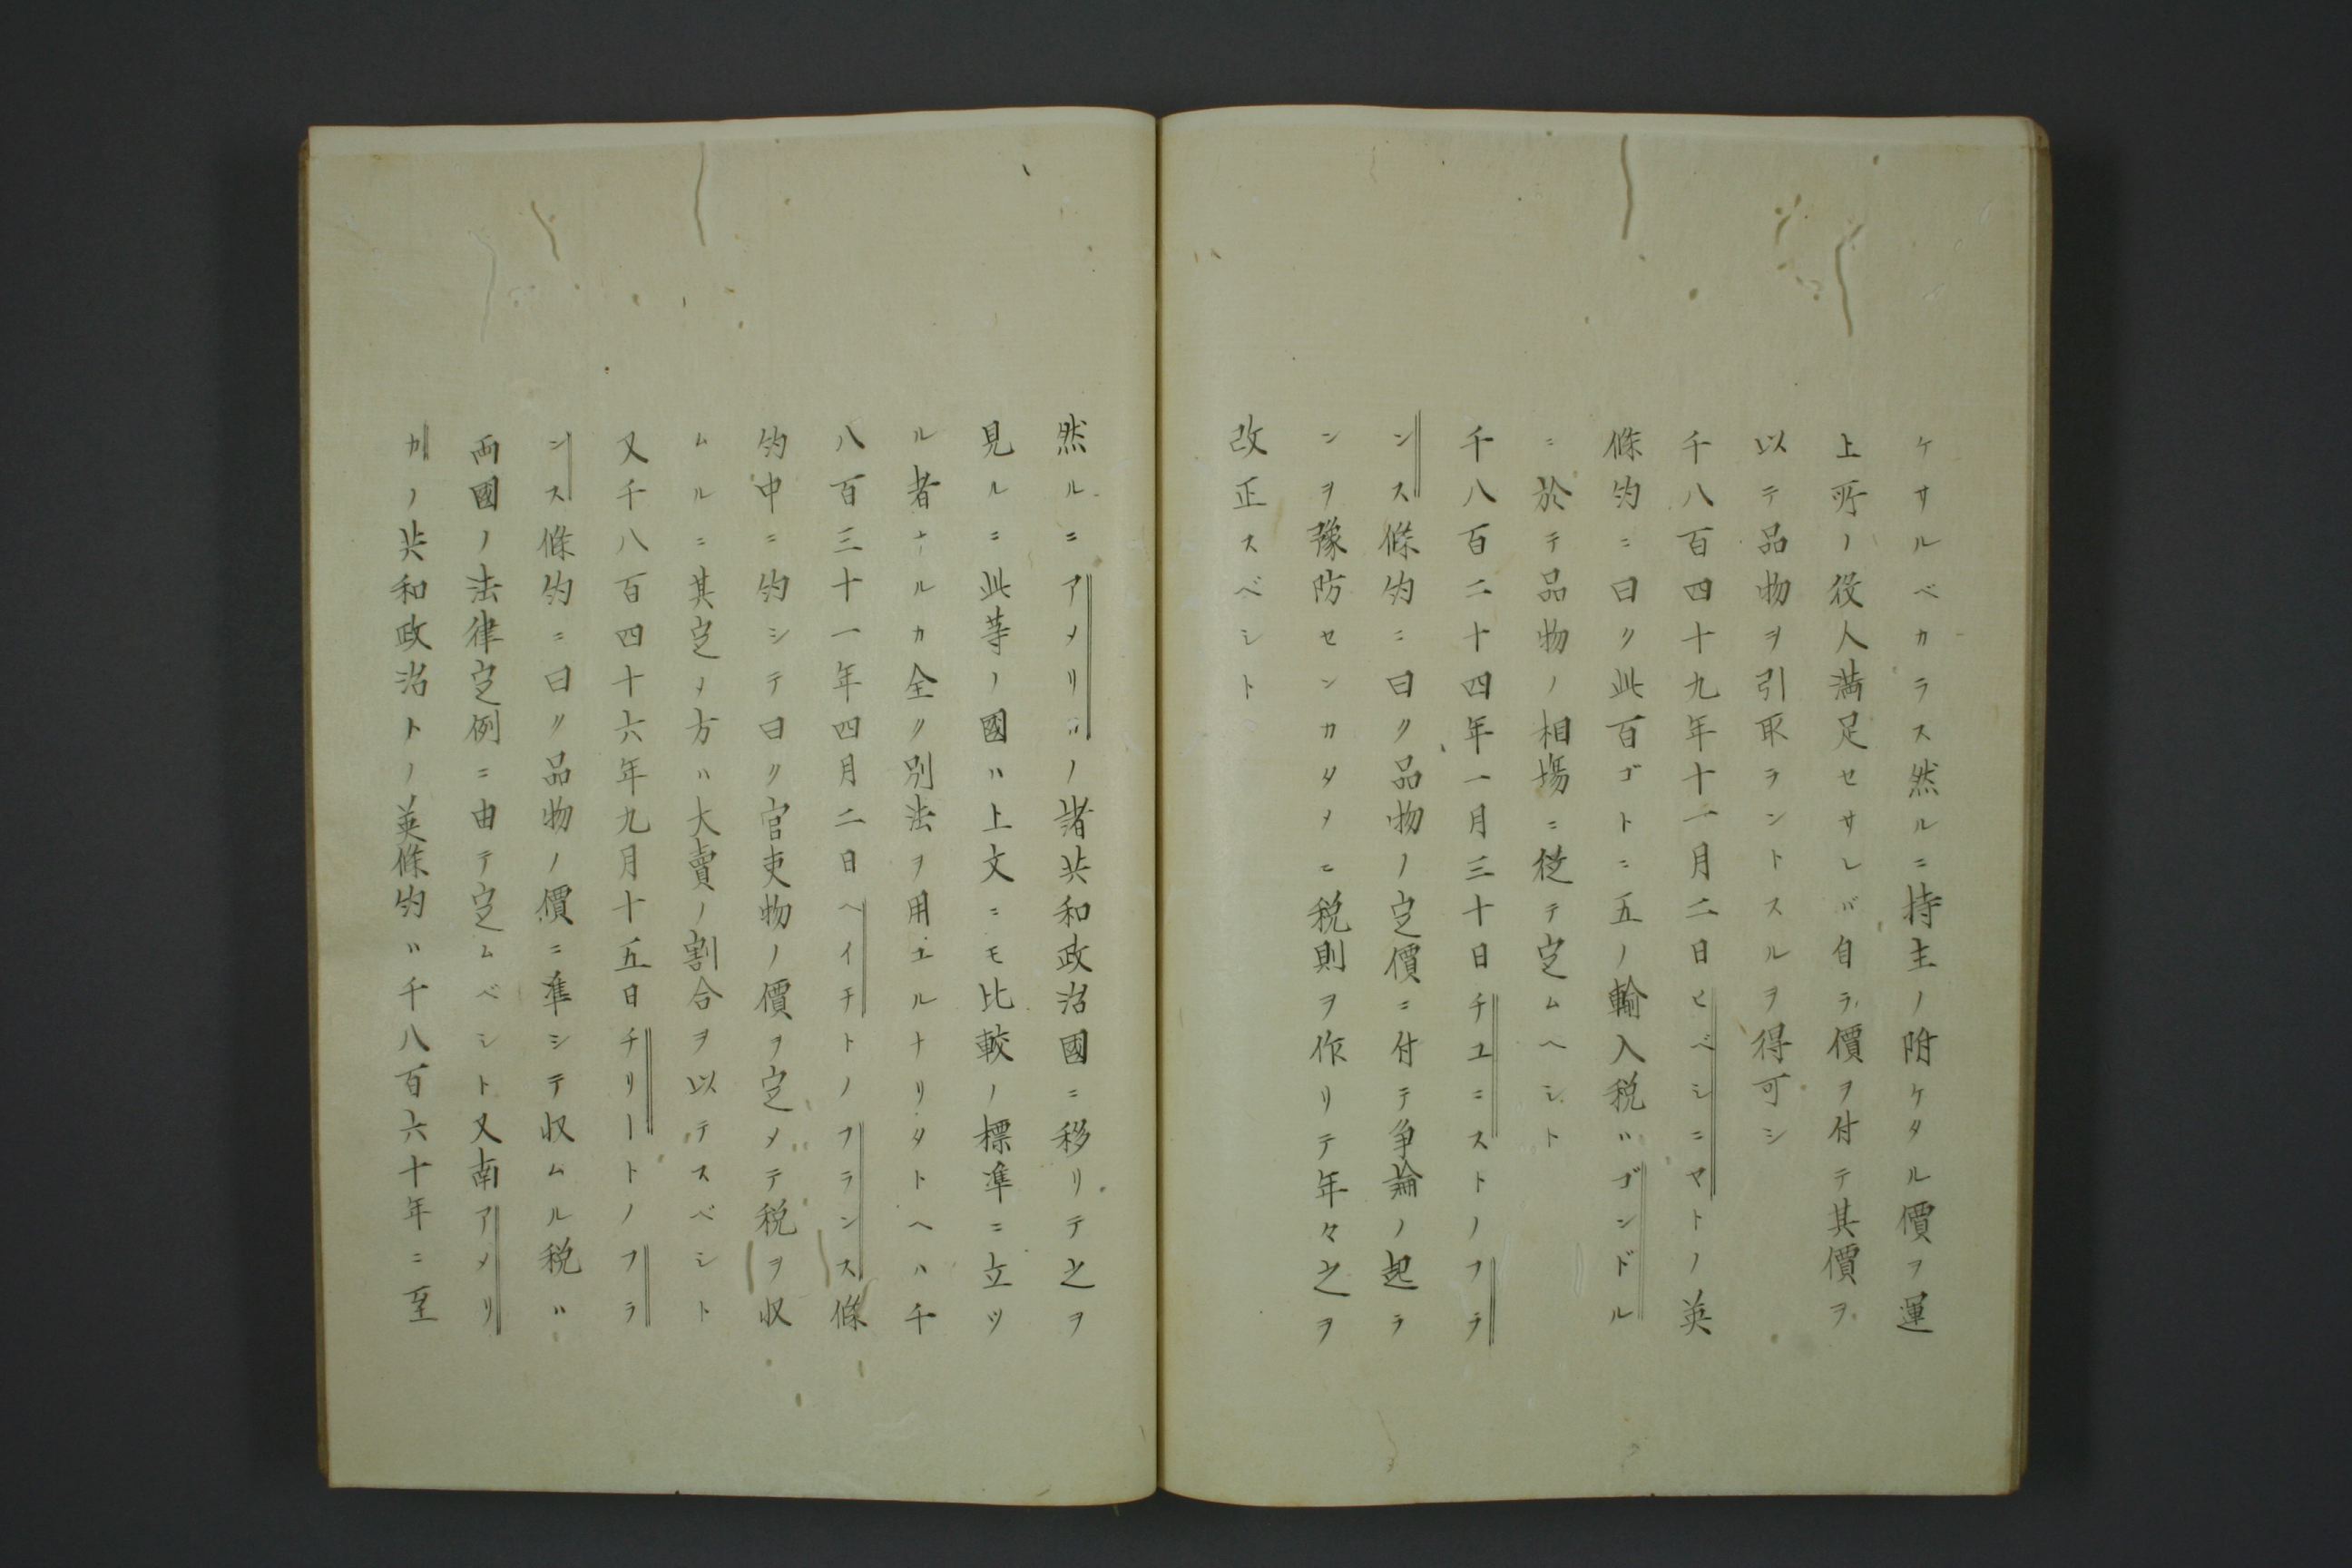 ケサルベカラス然ルニ持主ノ附ケタル價フ運
上所ノ役人満足セサレバ自ラ價ヲ付テ其價ヲ
以テ品物ヲ引取ラントスルヲ得可シ
千八百四十九年十一月二日ヒベシニヤトノ英
條約ニ曰ク此百ゴトニ五ノ輸入税ハゴンドル
ニ於テ品物ノ相場ニ従テ定ムヘシト
千八百二十四年一月三十日チユニストノフラ
ンス條約ニ曰ク品物ノ定價ニ付テ争論ノ起ラ
ンヲ豫防センカタメニ税則ヲ作リテ年々之ヲ
改正スベシト
然ルニアメリカノ諸共和政治國ニ移リテ之ヲ
見ルニ此等ノ國ハ上文ニモ比較ノ標準ニ立ツ
ル者ナルカ全ク別法ヲ用エルナリタトヘハ千
八百三十一年四月二日ヘイチトノフランス條
約中ニ約シテ曰ク官吏物ノ價ヲ定メテ税ヲ収
ムルニ其定メ方ハ大賣ノ割合ヲ以テスベシト
又千八百四十六年九月十五日チリートノフラ
ンス條約ニ曰ク品物ノ價ニ準シテ収ムル税ハ
両國ノ法律定例ニ由テ定ムベシト又南アメリ
カノ共和政治トノ英條約ハ千八百六十年ニ至